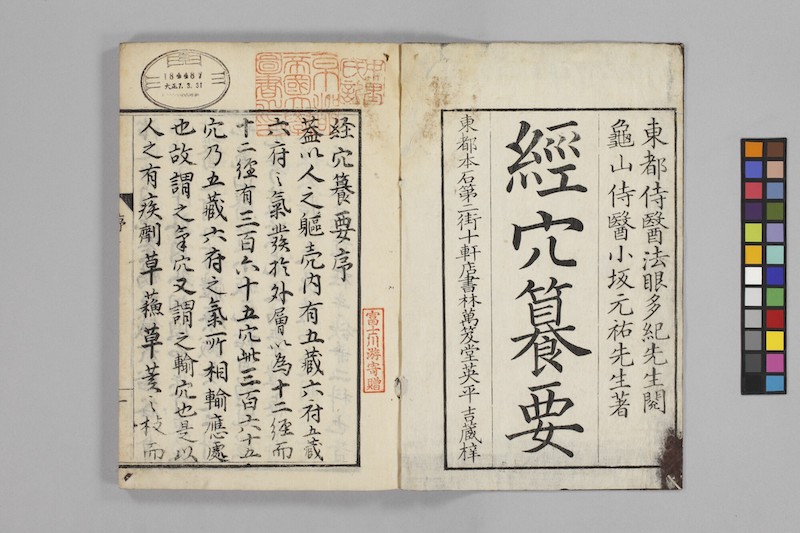 東都侍醫法眼多紀先生閲
龜山侍醫小坂元祐先生著
經穴籑要
東都本石第二街十軒店書林萬笈堂英平吉藏梓
経穴籑要序
蓋以人之軀壳内有五藏六府五藏
六府之氣發於外屬以為十二經而
十二經有三百六十五穴此三百六十五
穴乃五藏六府之氣所相輸應處
也故謂之氣穴又謂之輸穴也是以
人之有疾劑草蘓草荄之枝而
序
富士川游寄贈
184487
大正7.3.31